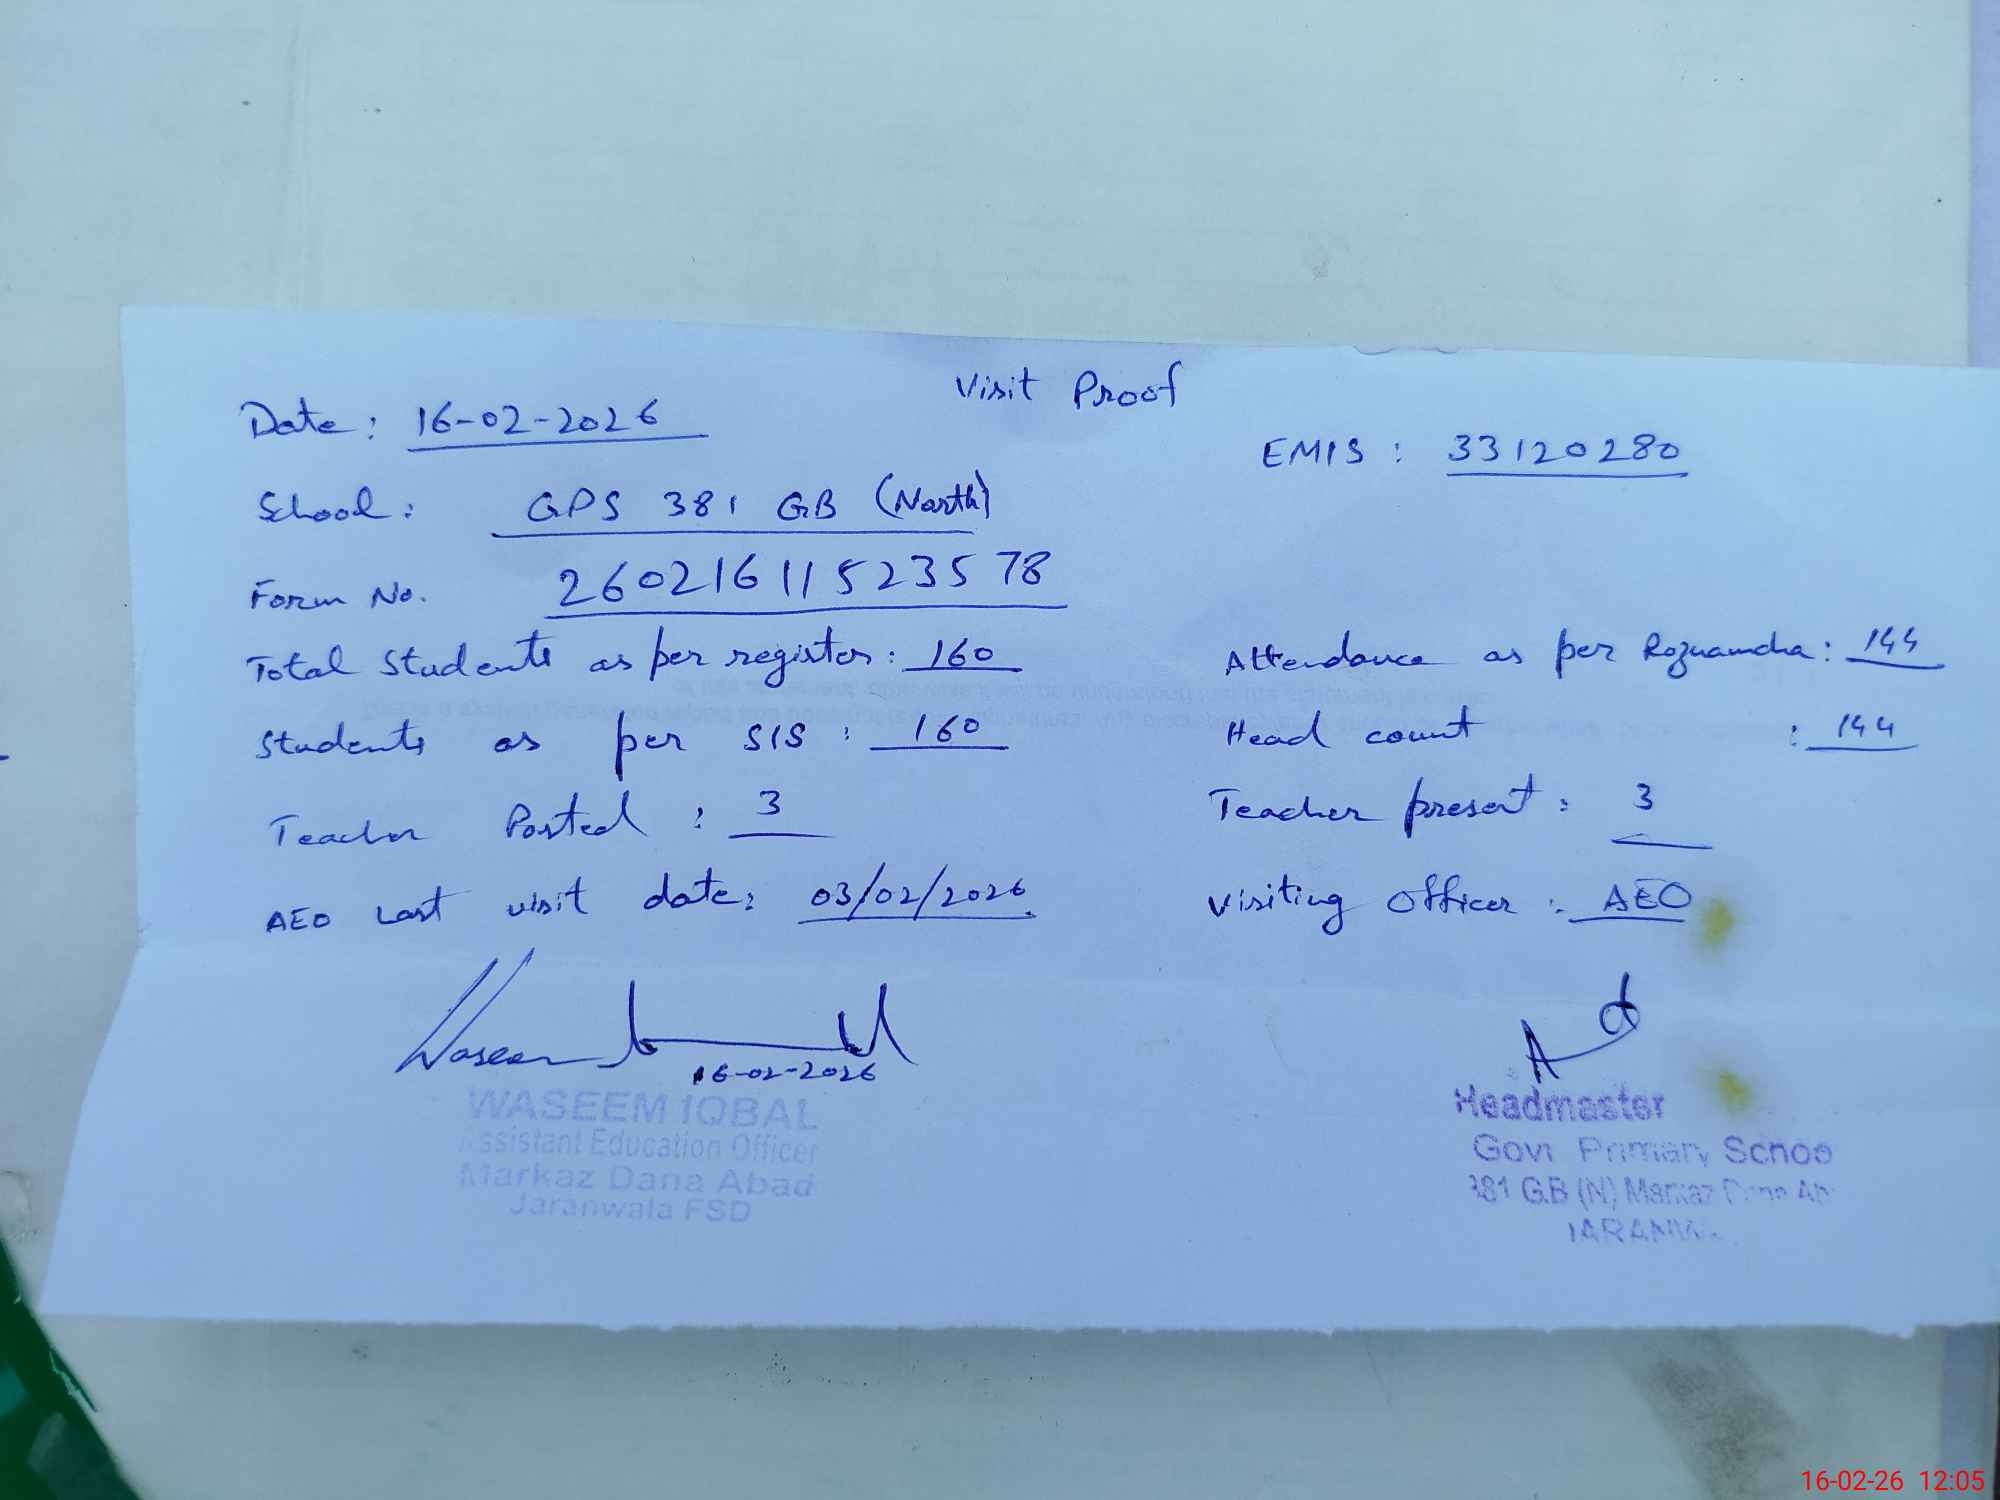 Visit Proof
Date: 16-02-2026
EMIS: 33120280
School: GPS 381 GB (North)
Form No. 260216115235 78
Total Students as per register: 160
Attendance as per Roznamcha: 144
Students as per SIS: 160
Head count: 144
Teacher Posted: 3
Teacher present: 3
AEO Last visit date: 03/02/2026
Visiting Officer: AEO
Waseem
16-02-2026
WASEEM IQBAL
Assistant Education Officer
Markaz Dana Abad
Jaranwala FSD
Headmaster
Govt Primary Schoo
381 G.B (N) Markaz Dana Ab
JARANW
16-02-26 12:05